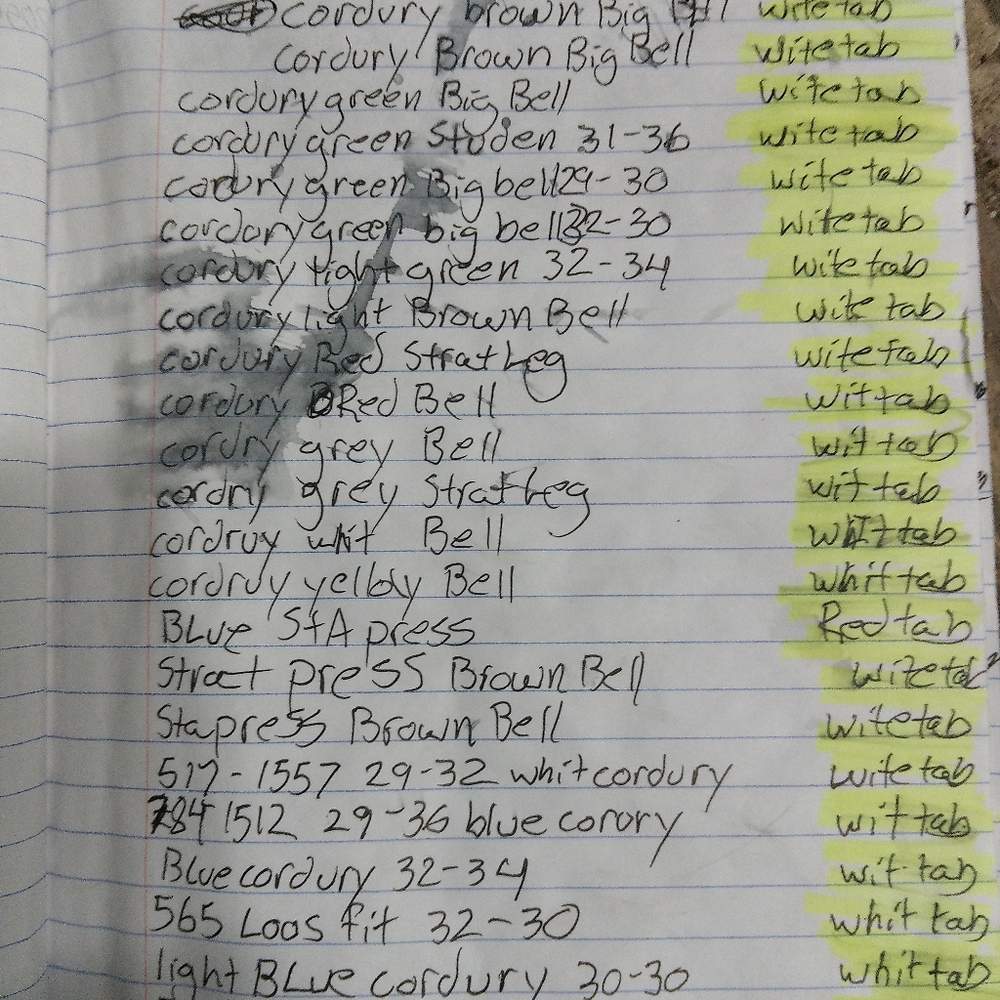 cordury brown Big Bell witetab
cordury Brown Big Bell witetab
cordury green Big Bell witetab
cordury green Studen 31-36 witetab
cordury green Big bell 29-30 witetab
cordory green big bell 32-30 witetab
cordury light green 32-34 witetab
cordury light Brown Bell wite tab
cordury Red Strat Leg witetab
cordury Red Bell wittab
cordry grey Bell wit tab
cordry grey Strat Leg wit tab
cordruy whit Bell whit tab
cordruy yelloy Bell whit tab
BLue StA press Red tab
Strat press Brown Bell witeta
Stapress Brown Bell witetab
517-1557 29-32 whit cordury witetab
784 1512 29-36 blue corory wit tab
Blue cordury 32-34 wit tab
565 Loos fit 32-30 whit tab
light BLue cordury 30-30 whit tab